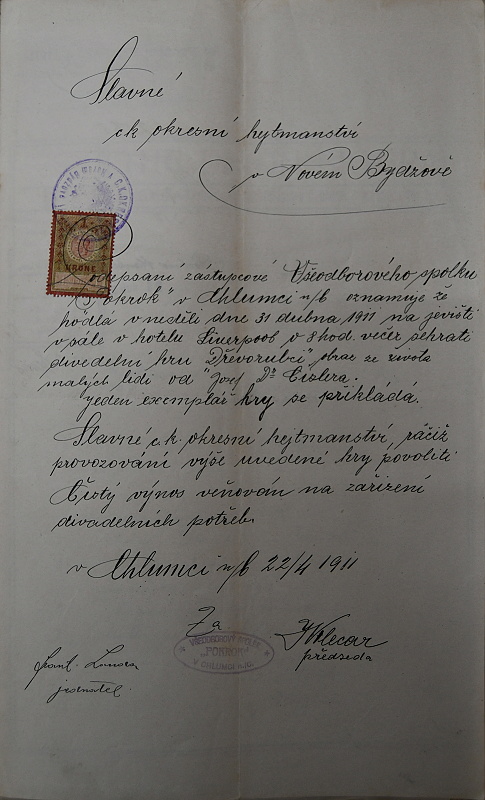 Slavné
ck okresní hejtmanství
v Novém Bydžově
1
KRONE
odepsaní zástupcové Všeodborového spolku
"Pokrok" v Chlumci n/b oznamuje že
hodlá v neděli dne 31 dubna 1911 na jevišti
v sále v hotelu Liverpool v 8 hod. večer sehrati
divedelní hru "Dřevorubci", obraz ze života
malých lidí od "Josef Dr Cislera.
jeden exemplář hry se přikládá.
Slavné c.k. okresní hejtmanství, račiž
provozování výše uvedené hry povoliti
Čistý výnos věňován na zařízení
divadelních potřeb.
v Chlumci n/b 22/4 1911
Za
VŠEODBOROVÝ SPOLEK
"POKROK"
V CHLUMCI N.C.
předseda
Frant.
jednatel.